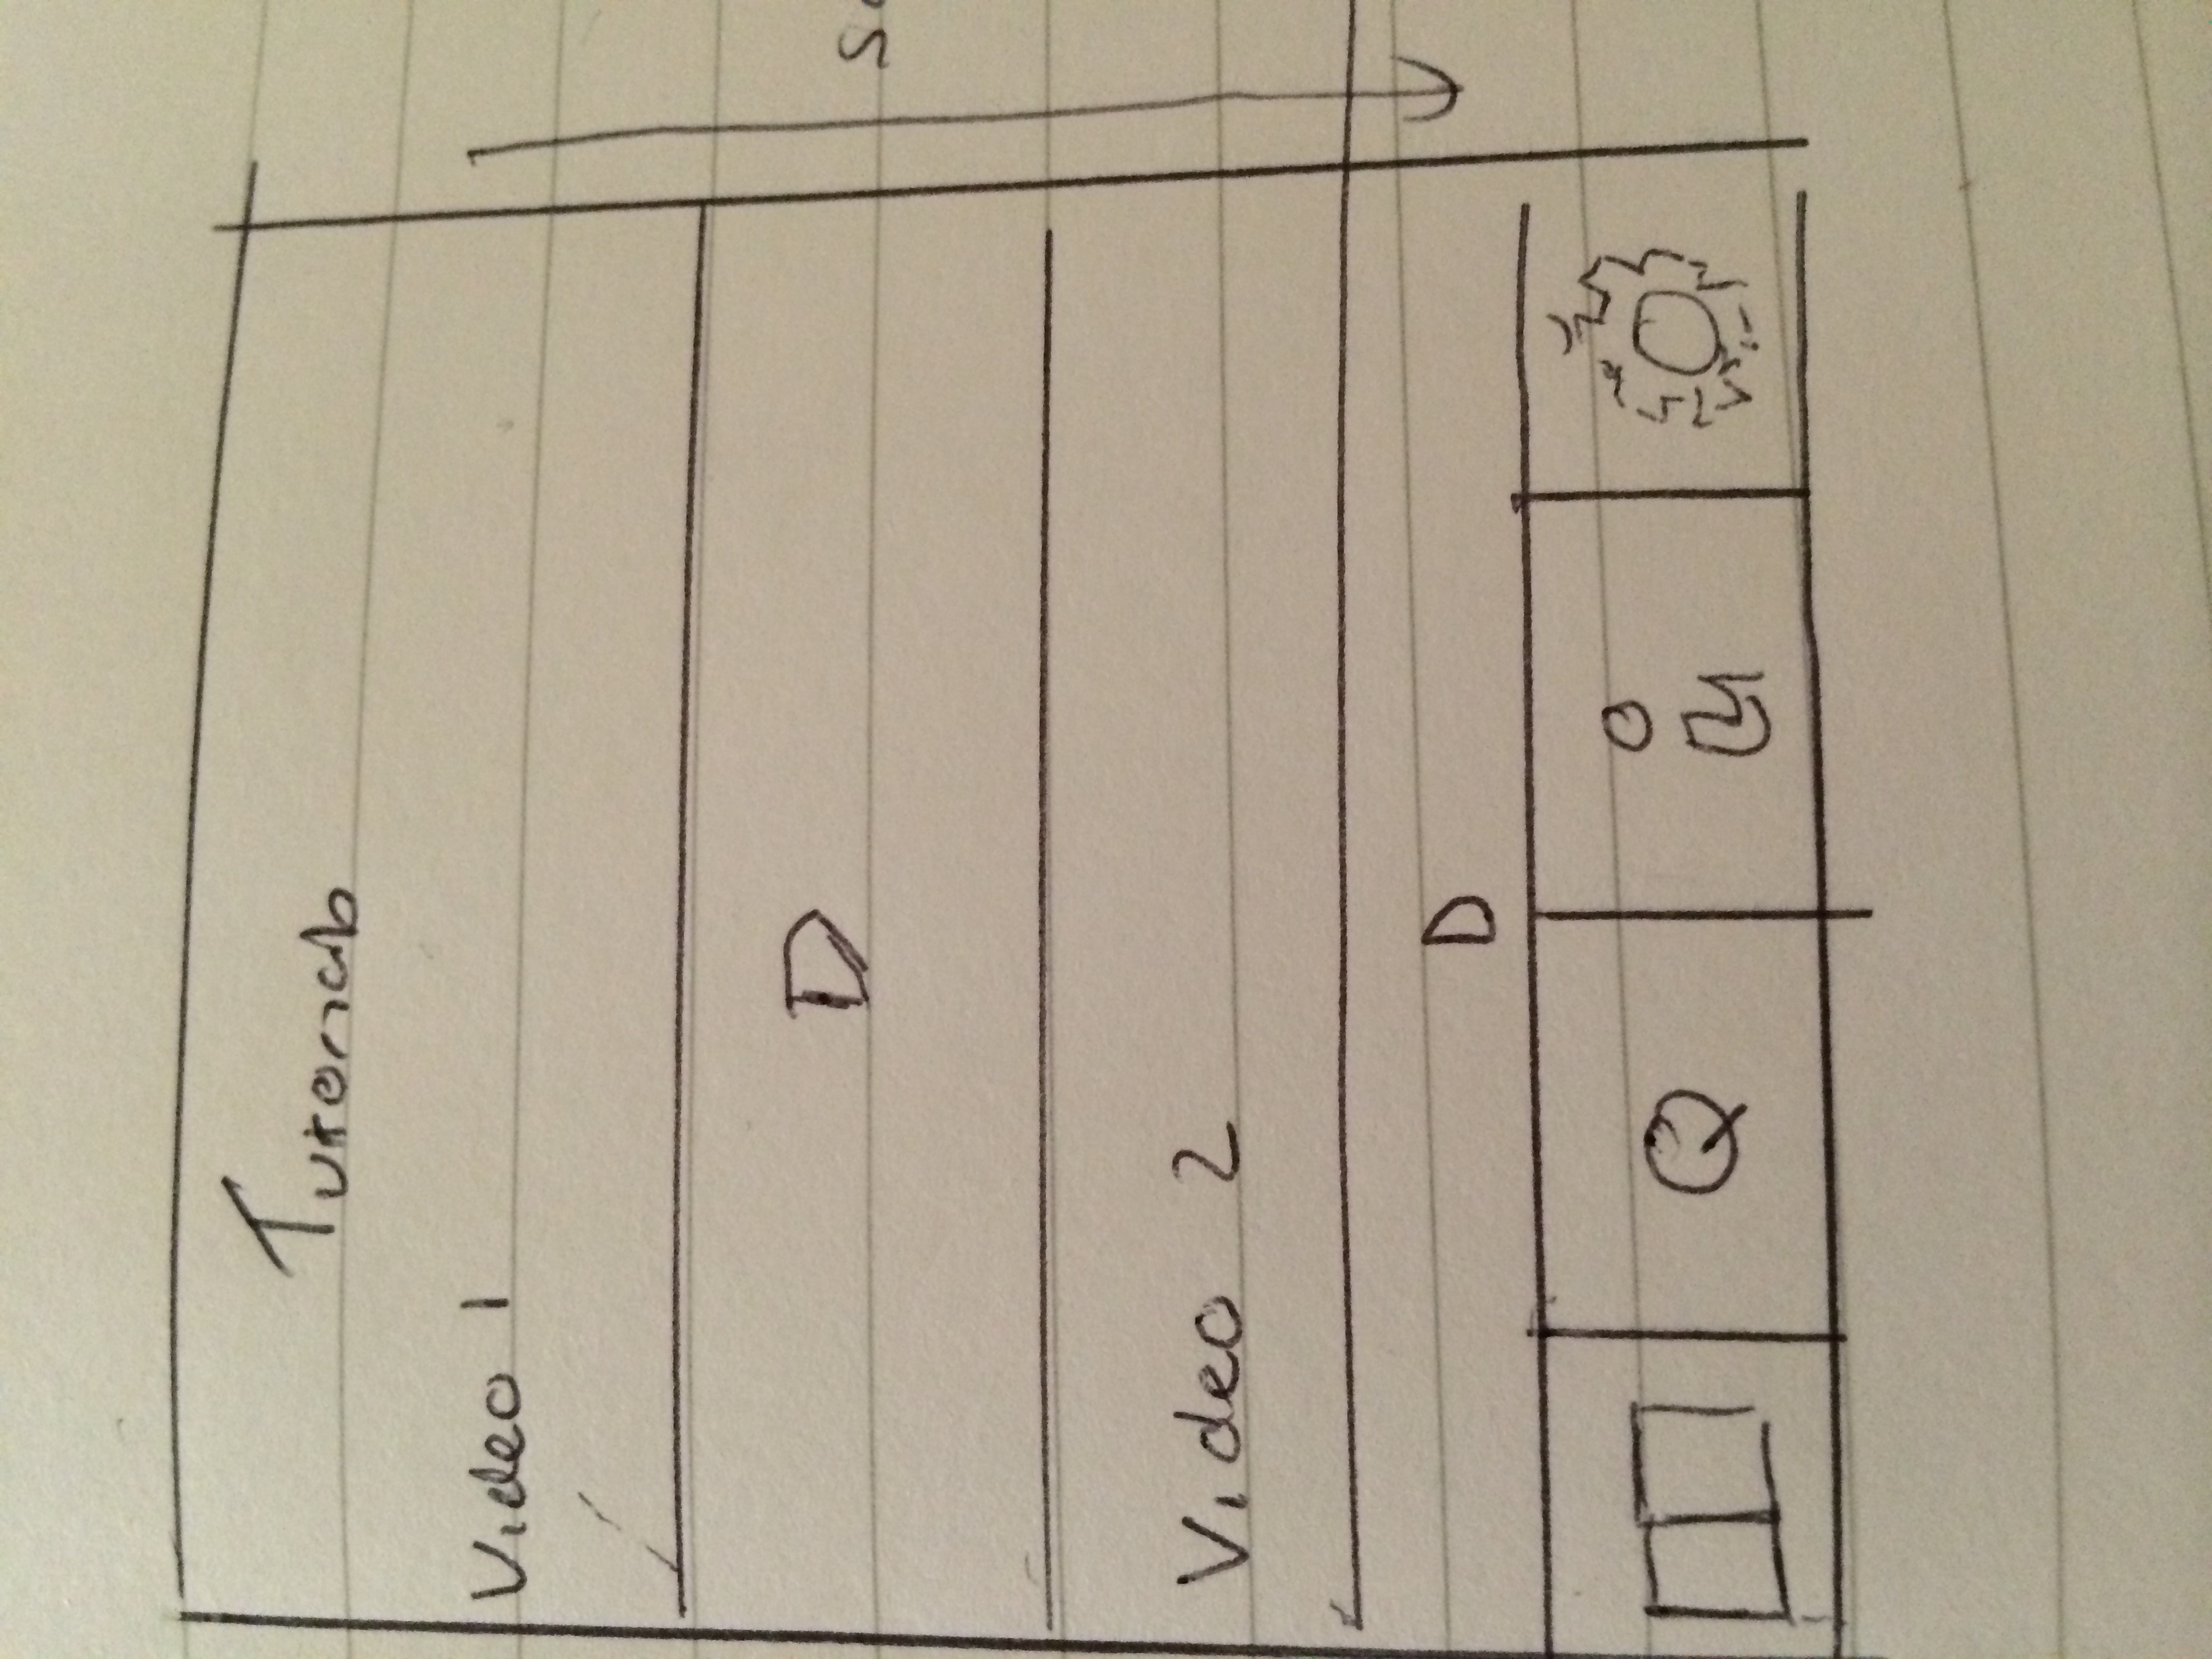 Tutorials
Video 1
Video 2